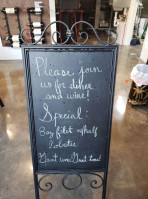 Please join
us for dinner
and wine!
Special:
8oz filet w/half
lobster
Giant wine! Giant taste!